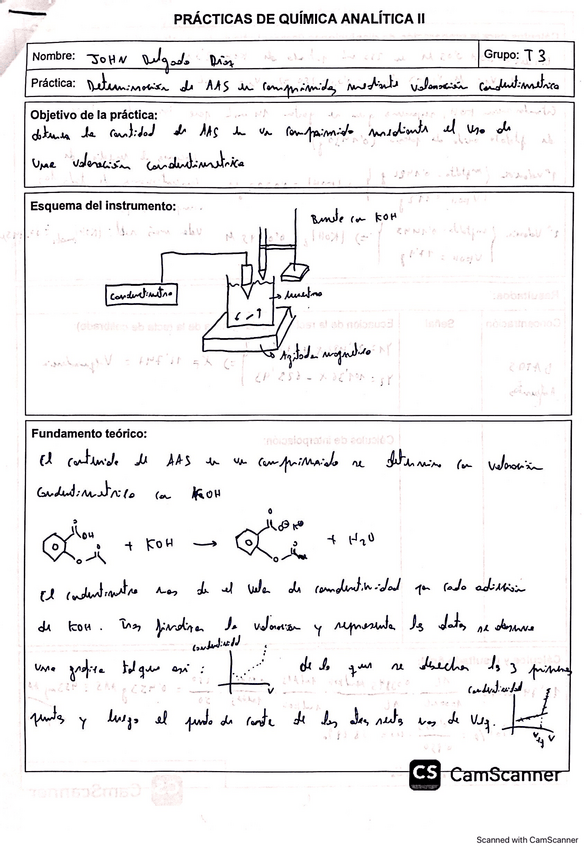 PRÁCTICAS DE QUÍMICA ANALÍTICA II
Nombre: JOHN Delgado Díaz
Grupo: T3
Práctica: Determinación de AAS en comprimidos mediante valoración conductimetrica
Objetivo de la práctica:
obtener la cantidad de AAS en un comprimido mediante el uso de
una valoración conductimetrica
Esquema del instrumento:
Burete con KOH
conductimetro
muestra
Agitador magnetico
Fundamento teórico:
El contenido de AAS en un comprimido se determina con valoración
Conductimetrica con KOH
OH
O
+ KOH → + H2O
El conductimetro nos da el valor de conductividad por cada adición
de KOH. Tras finalizar la valoración y representar los datos se observa
conductividad
una grafica tal que asi : de la que se desechan los 3 primeros
V
conductividad
puntos y luego el punto de corte de las dos rectas nos da Veq.
Veq V
CS CamScanner
Scanned with CamScanner